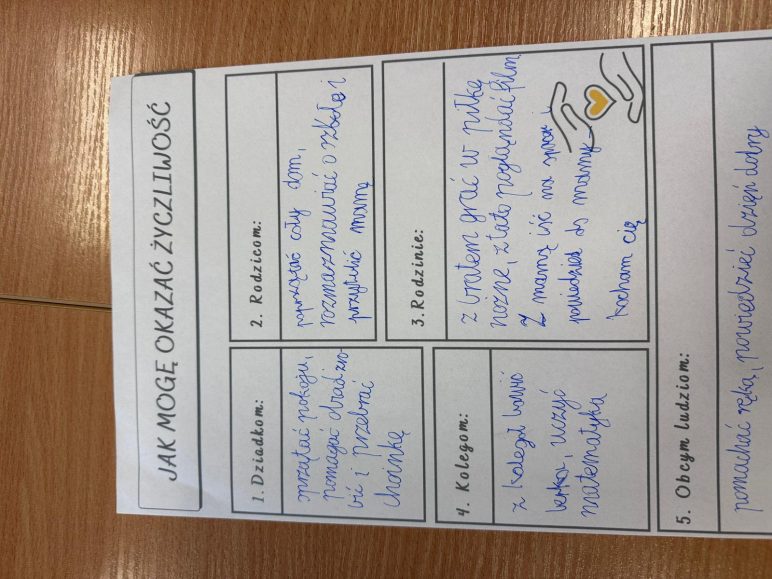 JAK MOGĘ OKAZAĆ ŻYCZLIWOŚĆ
1. Dziadkom:
sprzątać pokoju,
pomagać obiad zro-
bić i przebrać
choinkę
2. Rodzicom:
posprzątać cały dom,
rozmazmawiać o szkole i
przytulić mamę
3. Rodzinie:
z bratem grać w piłkę
nożne, z tato poglądndai film
z mamą iść na spacer i
powiedzieć do mamy
kocham cię
4. Kolegom:
z kolegą bawić
berka, uczyć
matematyka
5. Obcym ludziom:
pomachać ręką, powiedzieć dzień dobry